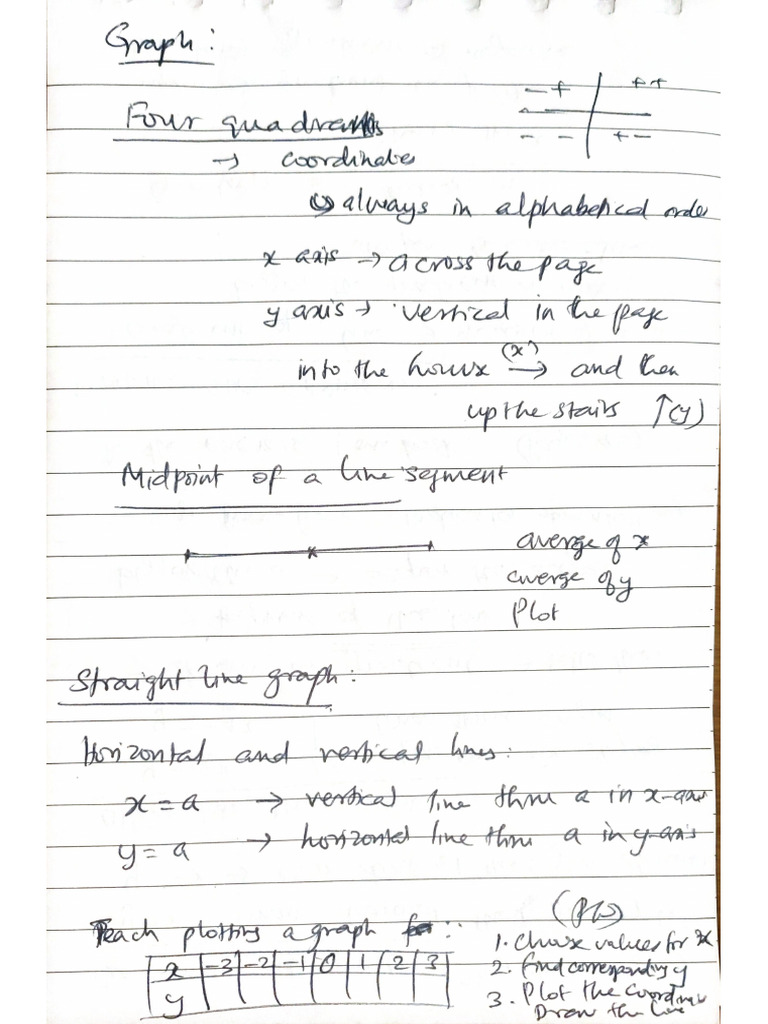 Graph:
- + ++
- - + -
Four quadrants
→ coordinates
↳ always in alphabetical order
x axis → across the page
y axis → vertical in the page
into the house (x) → and then
up the stairs ↑(y)
Midpoint of a line segment
averge of x
averge of y
Plot
Straight line graph:
Horizontal and vertical lines:
x = a → vertical line thru a in x-axis
y = a → horizontal line thru a in y-axis
Teach plotting a graph :
x -3 -2 -1 0 1 2 3
y
1. Choose values for x
2. find corresponding y
3. Plot the coordinates
Draw the line